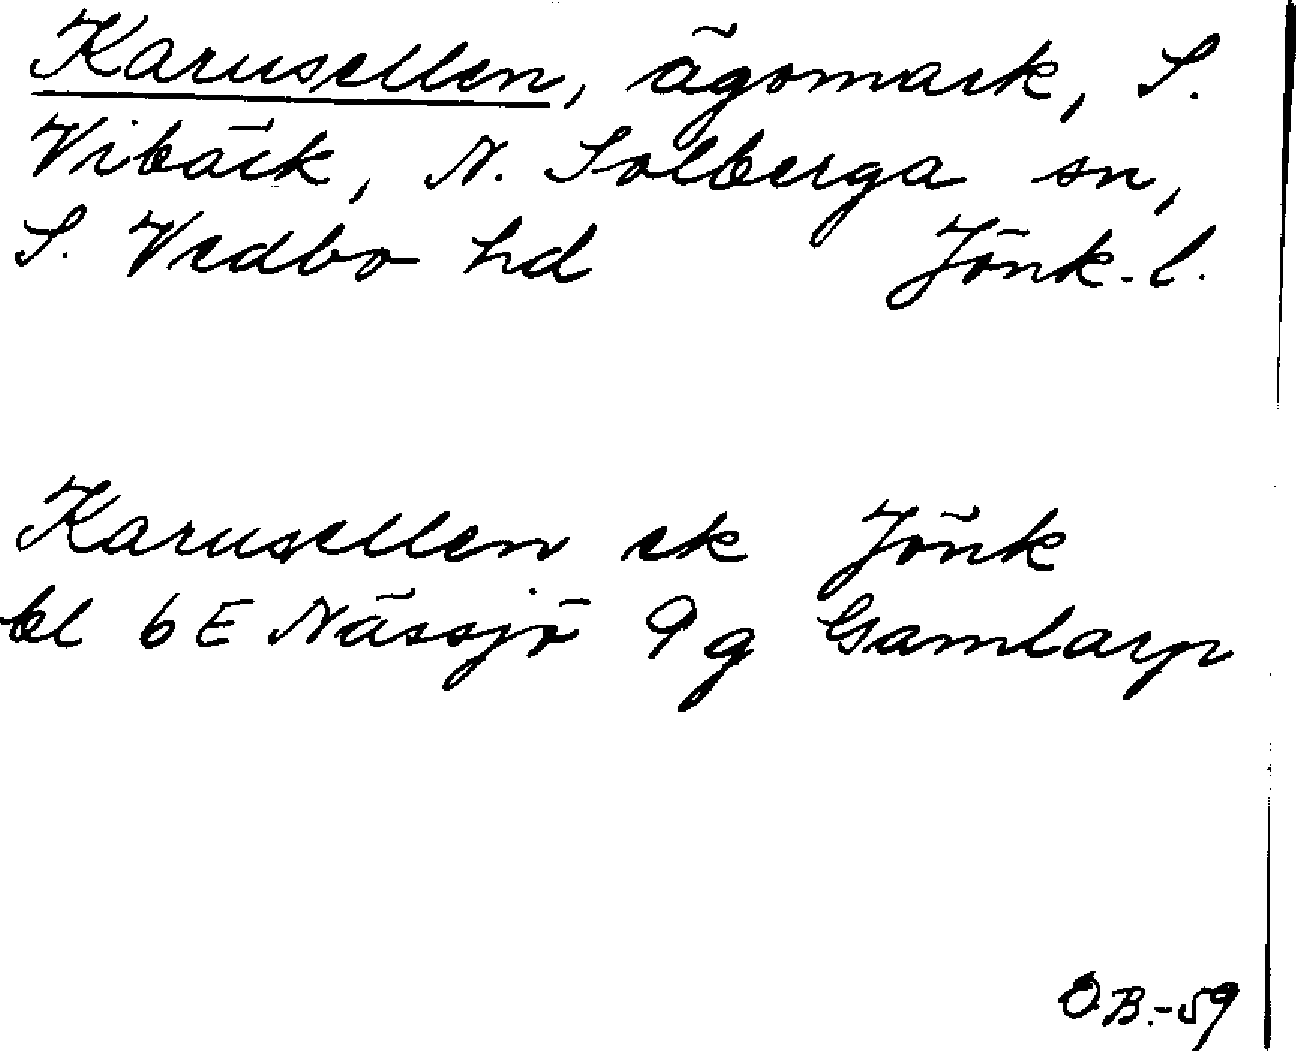 Karusellen, ägomark, S.
Vibäck, N. Solberga sn,
S. Vedbo hd Jönk.l.
Karusellen ek Jönk
bl 6E Nässjö 9g Gamlarp
O.B.-59